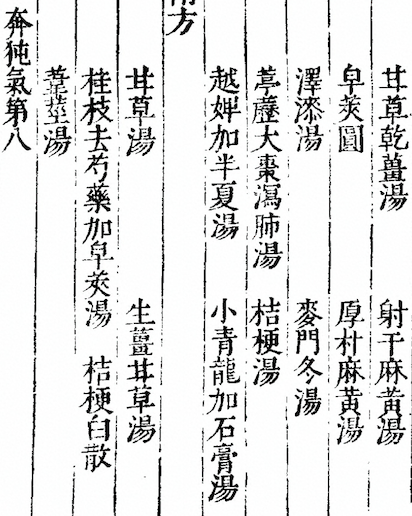 甘草乾薑湯 射干麻黃湯
皁莢圓 厚朴麻黃湯
澤漆湯 麥門冬湯
葶藶大棗瀉肺湯 桔梗湯
越婢加半夏湯 小青龍加石膏湯
方
甘草湯 生薑甘草湯
桂枝去芍藥加皁莢湯 桔梗白散
葦莖湯
奔㹠氣第八